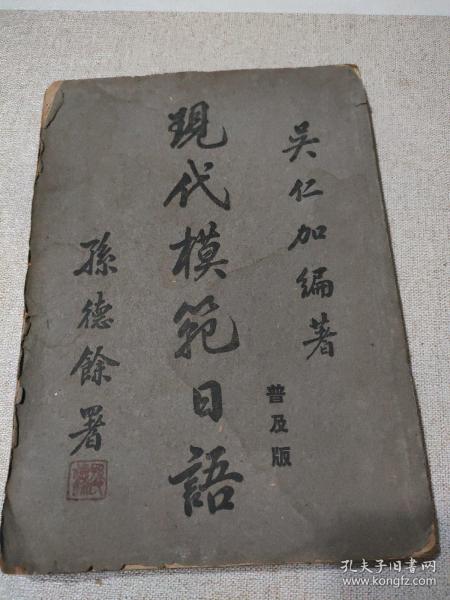 吴仁加編著
普及版
現代模範日語
孫德餘署
孔夫子旧书网
www.kongfz.com